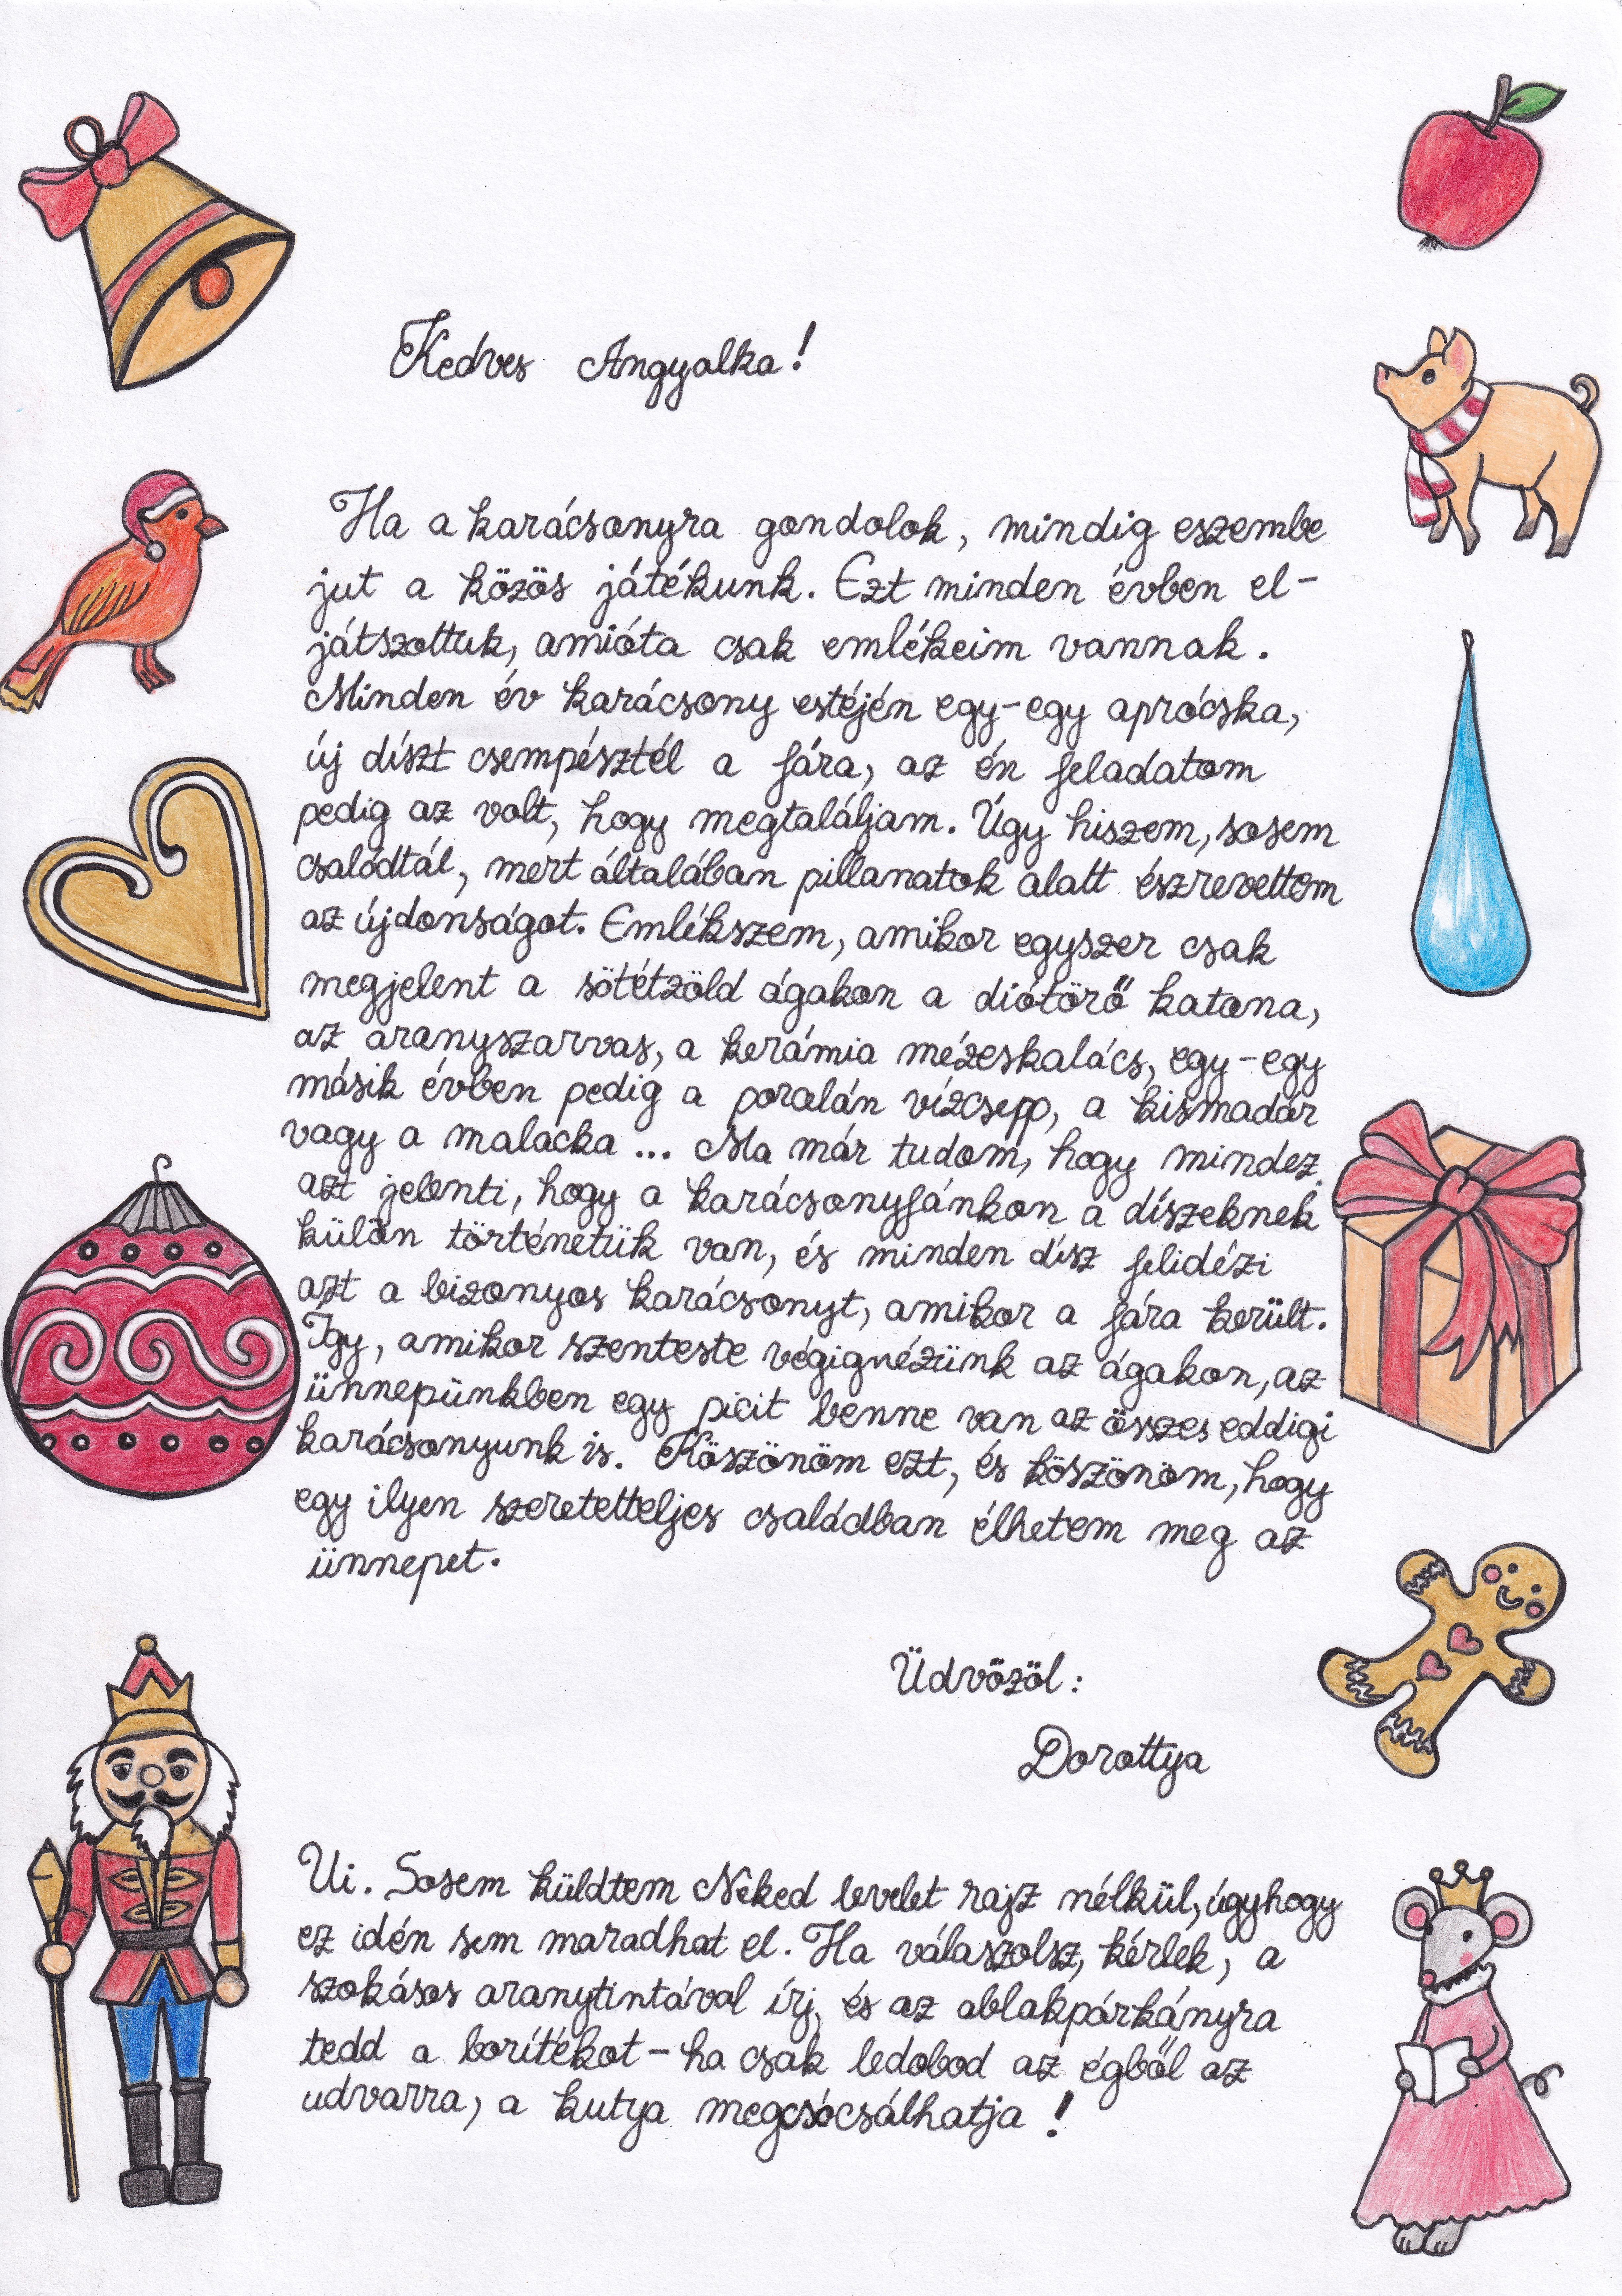 Kedves Angyalka!
Ha a karácsonyra gondolok, mindig eszembe
jut a közös játékunk. Ezt minden évben el-
játszottuk, amióta csak emlékeim vannak.
Minden év karácsony estéjén egy-egy aprócska,
új díszt csempésztél a fára, az én feladatom
pedig az volt, hogy megtaláljam. Úgy hiszem, sosem
csalódtál, mert általában pillanatok alatt észrevettem
az újdonságot. Emlékszem, amikor egyszer csak
megjelent a sötétzöld ágakon a diótörő katona,
az aranyszarvas, a kerámia mézeskalács, egy-egy
másik évben pedig a porcelán vízcsepp, a kismadár
vagy a malacka ... Ma már tudom, hogy mindez
azt jelenti, hogy a karácsonyfánkon a díszeknek
külön történetük van, és minden dísz felidézi
azt a bizonyos karácsonyt, amikor a fára került.
Így, amikor szenteste végignézünk az ágakon, az
ünnepünkben egy picit benne van az összes eddigi
karácsonyunk is. Köszönöm ezt, és köszönöm, hogy
egy ilyen szeretetteljes családban élhetem meg az
ünnepet.
Üdvözöl:
Dorottya
Ui. Sosem küldtem Neked levelet rajz nélkül, úgyhogy
ez idén sem maradhat el. Ha válaszolsz, kérlek, a
szokásos aranytintával írj, és az ablakpárkányra
tedd a borítékot - ha csak ledobod az égből az
udvarra, a kutya megcsócsálhatja!